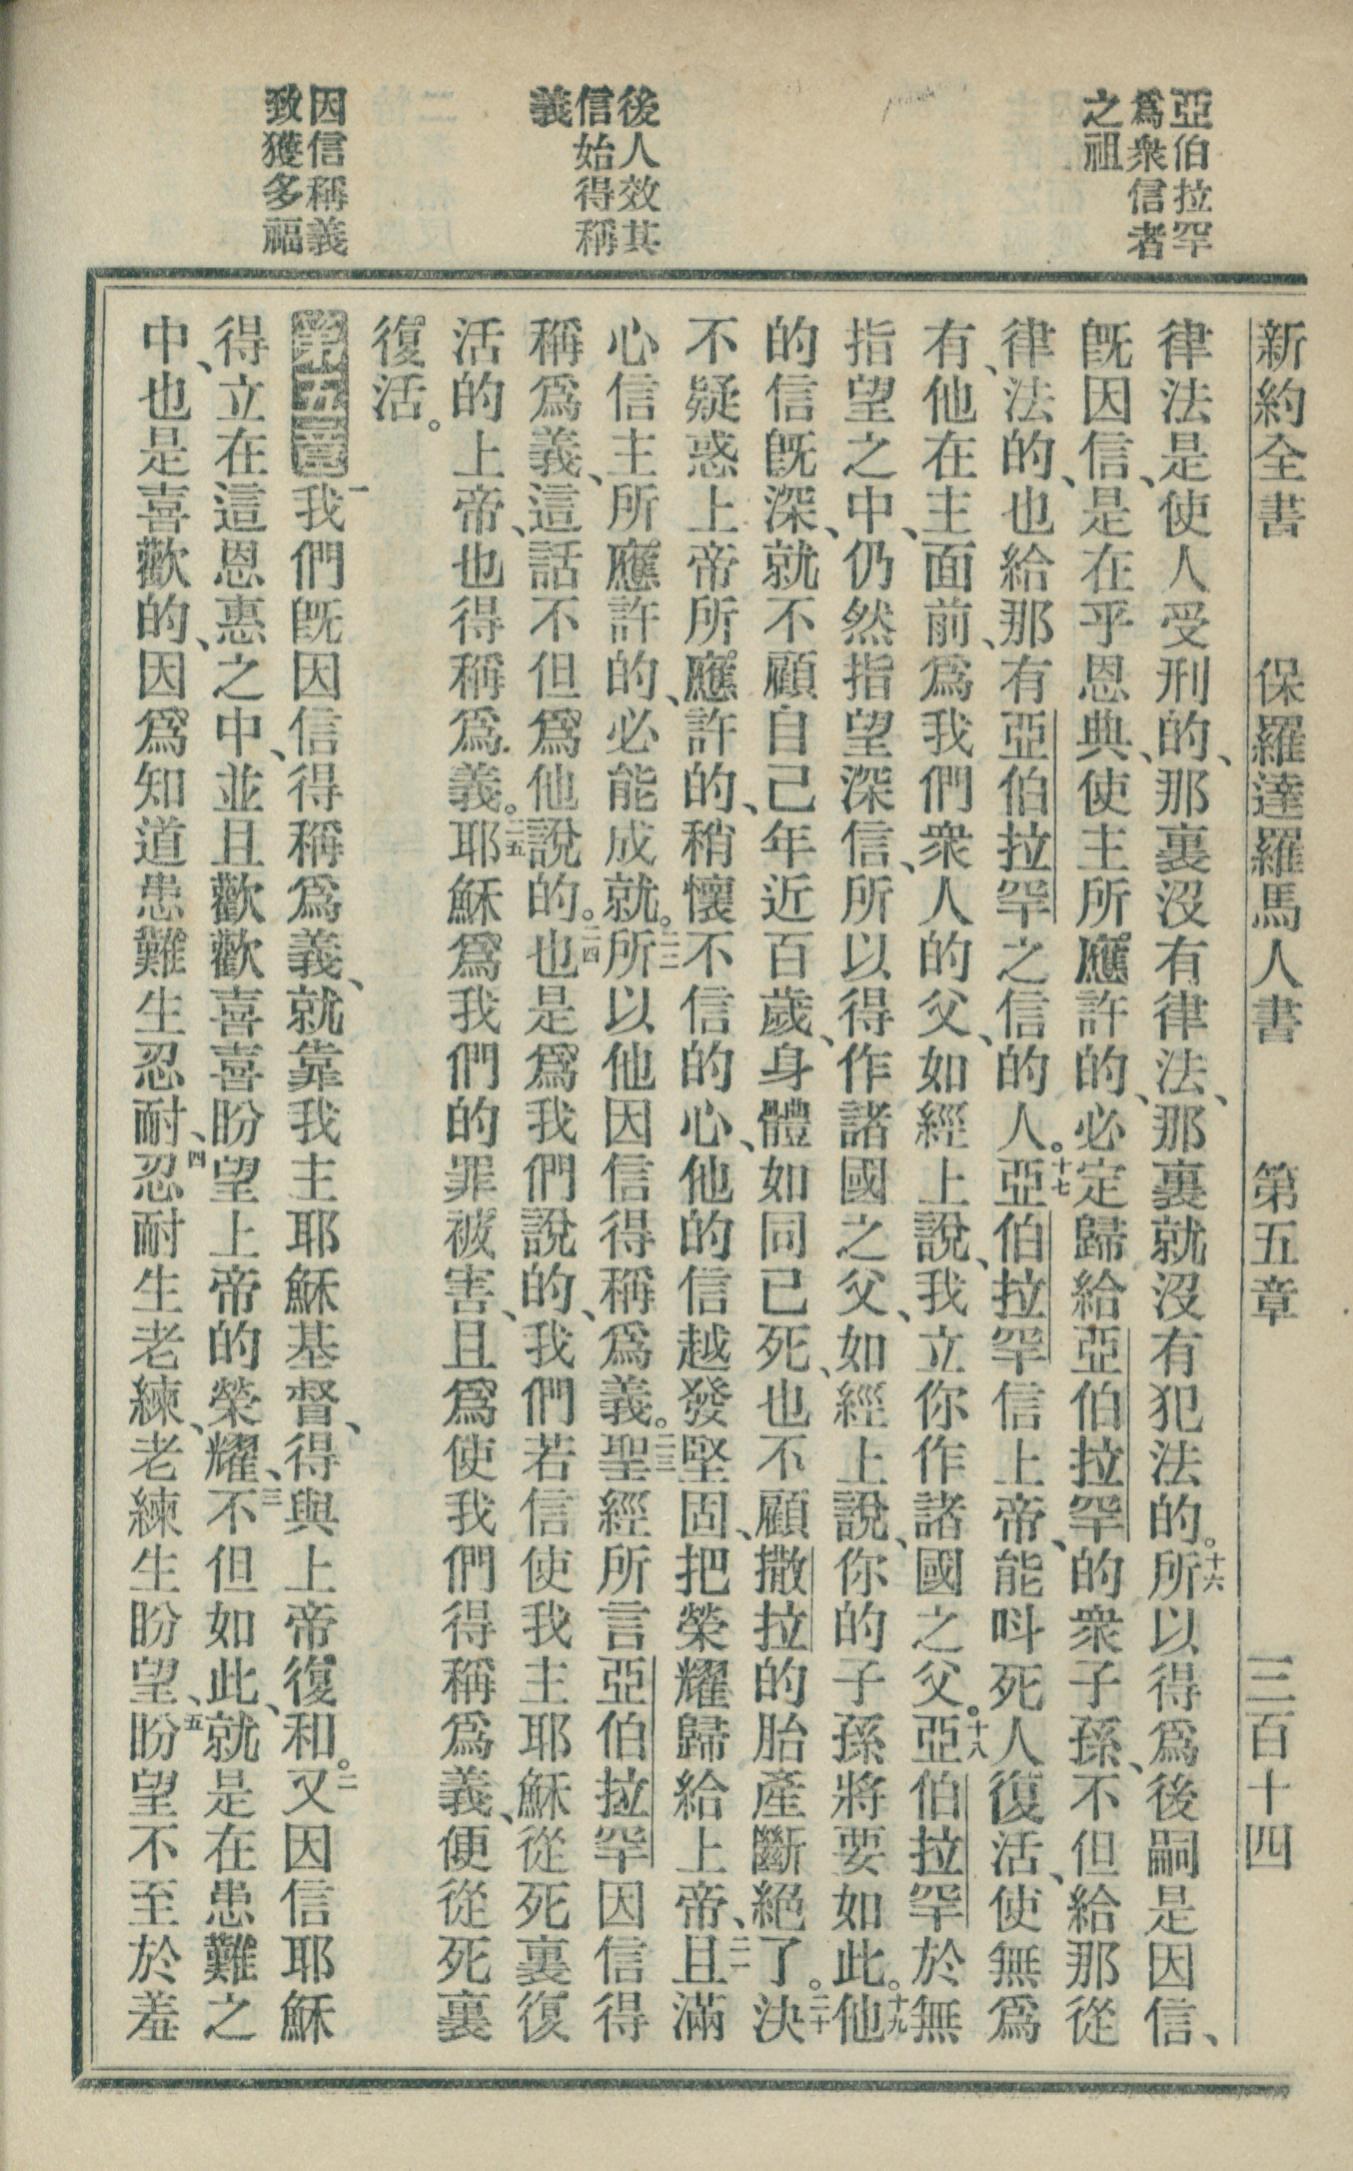 新約全書　保羅達羅馬人書　第五章　三百十四
亞伯拉罕
爲衆信者
之祖
後人效其
信始得稱
義
因信稱義
致獲多福
律法是使人受刑的、那裏沒有律法、那裏就沒有犯法的。十六所以得爲後嗣是因信、
旣因信、是在乎恩典、使主所應許的、必定歸給亞伯拉罕的衆子孫、不但給那從
律法的、也給那有亞伯拉罕之信的人。十七亞伯拉罕信上帝、能呌死人復活、使無爲
有、他在主面前、爲我們衆人的父、如經上說、我立你作諸國之父。十八亞伯拉罕於無
指望之中、仍然指望深信、所以得作諸國之父、如經上說、你的子孫將要如此。十九他
的信旣深、就不顧自己年近百歲、身體如同已死、也不顧撒拉的胎產斷絕了。二十決
不疑惑上帝所應許的、稍懷不信的心、他的信越發堅固、把榮耀歸給上帝、二一且滿
心信主所應許的、必能成就。二二所以他因信得稱爲義。二三聖經所言亞伯拉罕因信得
稱爲義、這話不但爲他說的。二四也是爲我們說的、我們若信使我主耶穌從死裏復
活的上帝、也得稱爲義。二五耶穌爲我們的罪被害、且爲使我們得稱爲義、便從死裏
復活。
第五章一我們旣因信得稱爲義、就靠我主耶穌基督、得與上帝復和。二又因信耶穌
得立在這恩惠之中、並且歡歡喜喜盼望上帝的榮耀、三不但如此、就是在患難之
中、也是喜歡的、因爲知道患難生忍耐、四忍耐生老練、老練生盼望、五盼望不至於羞